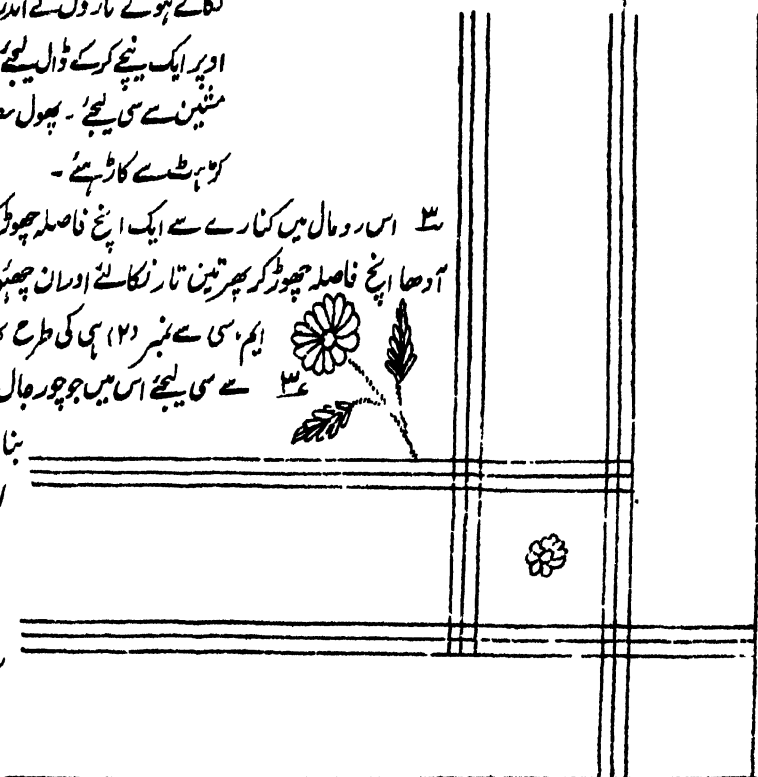 نکالے ہوئے تاروں کے اندر
اوپر ایک نیچے کرکے ڈال لیجئے
مشین سے سی لیجئے ۔ پھول
کڑہائی سے کاڑہئے ۔
۳ اس رومال میں کنارے سے ایک انچ فاصلہ چھوڑ
آدھا انچ فاصلہ چھوڑ کر پھر تین تار نکالئے اور ان
ایم ۔ سی سے نمبر (۲) ہی کی طرح
۳ سے سی لیجئے اس میں جو چور جال
بنا